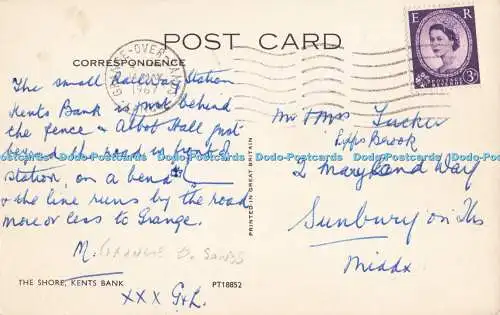 POST CARD
CORRESPONDENCE
GRANGE-OVER-SANDS
1967
E R
3D
The small Railway Station
Kents Bank is just behind
the fence & Abbot Hall just
beyond the road in front of
station, on a bend
& the line runs by the road
more or less to Grange.
M.
GRANGE O. SANDS
THE SHORE, KENTS BANK
PT18852
XXX G&L
PRINTED IN GREAT BRITAIN
Mr & Mrs Tucker
Brook
2 Maryland Way
Sunbury on Ths
Middx
Dodo-Postcards Dodo-Postcards Dodo-Postcards Dodo-Postcards